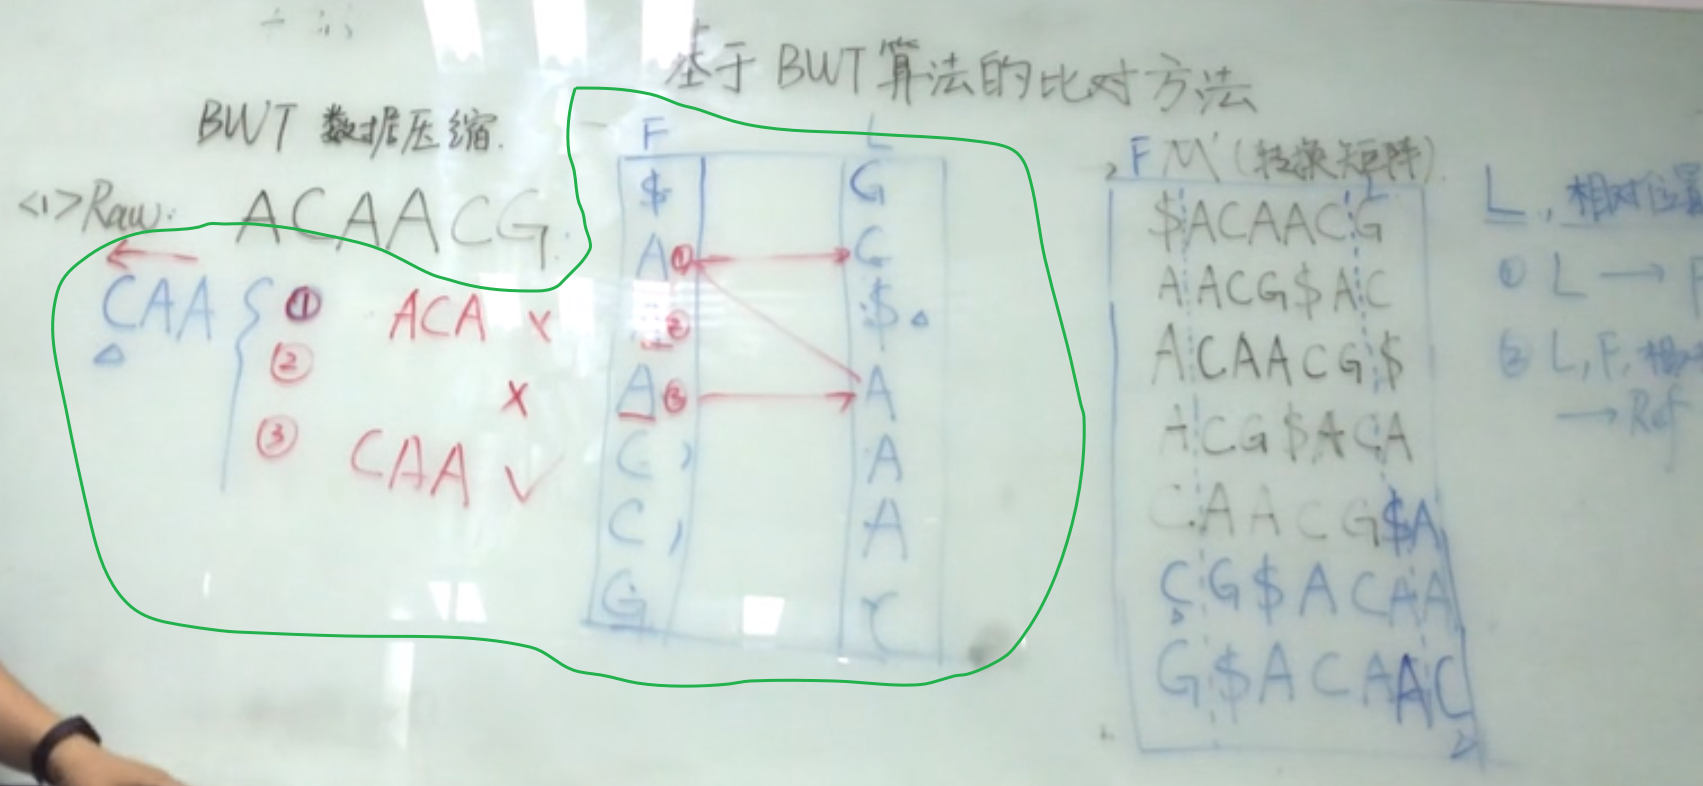 基于 BWT 算法的比对方法
BWT 数据压缩.
<1>Raw: ACAACG.
CAA
① ACA ×
② ×
③ CAA ✓
F L
$ G
A① C
② $
A③ A
C A
C A
G C
F M'(转换矩阵)
L
$ACAACG
AACG$AC
ACAACG$
ACG$ACA
CAACG$A
CG$ACAA
G$ACAAC
L, 相对位置
① L → F
② L, F,
→ Ref